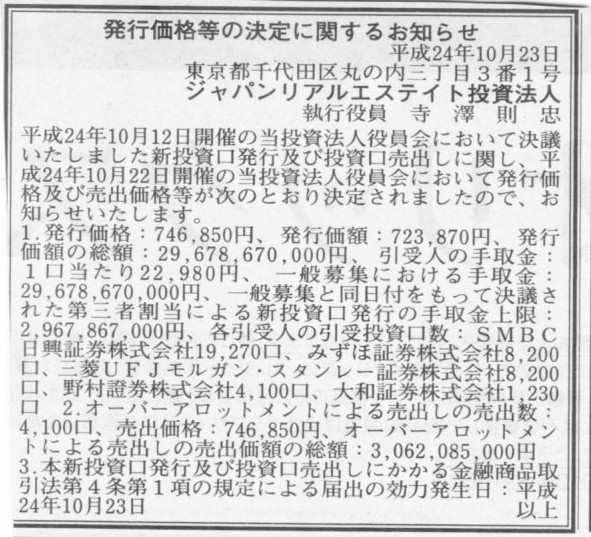 発行価格等の決定に関するお知らせ
平成24年10月23日
東京都千代田区丸の内三丁目3番1号
ジャパンリアルエステイト投資法人
執行役員 寺澤則忠
平成24年10月12日開催の当投資法人役員会において決議
いたしました新投資口発行及び投資口売出しに関し、平
成24年10月22日開催の当投資法人役員会において発行価
格及び売出価格等が次のとおり決定されましたので、お
知らせいたします。
1.発行価格：746,850円、発行価額：723,870円、発行
価額の総額：29,678,670,000円、引受人の手取金：
1口当たり22,980円、一般募集における手取金：
29,678,670,000円、一般募集と同日付をもって決議さ
れた第三者割当による新投資口発行の手取金上限：
2,967,867,000円、各引受人の引受投資口数：SMBC
日興証券株式会社19,270口、みずほ証券株式会社8,200
口、三菱UFJモルガン・スタンレー証券株式会社8,200
口、野村證券株式会社4,100口、大和証券株式会社1,230
口 2.オーバーアロットメントによる売出しの売出数：
4,100口、売出価格：746,850円、オーバーアロットメン
トによる売出しの売出価額の総額：3,062,085,000円
3.本新投資口発行及び投資口売出しにかかる金融商品取
引法第4条第1項の規定による届出の効力発生日：平成
24年10月23日 以上